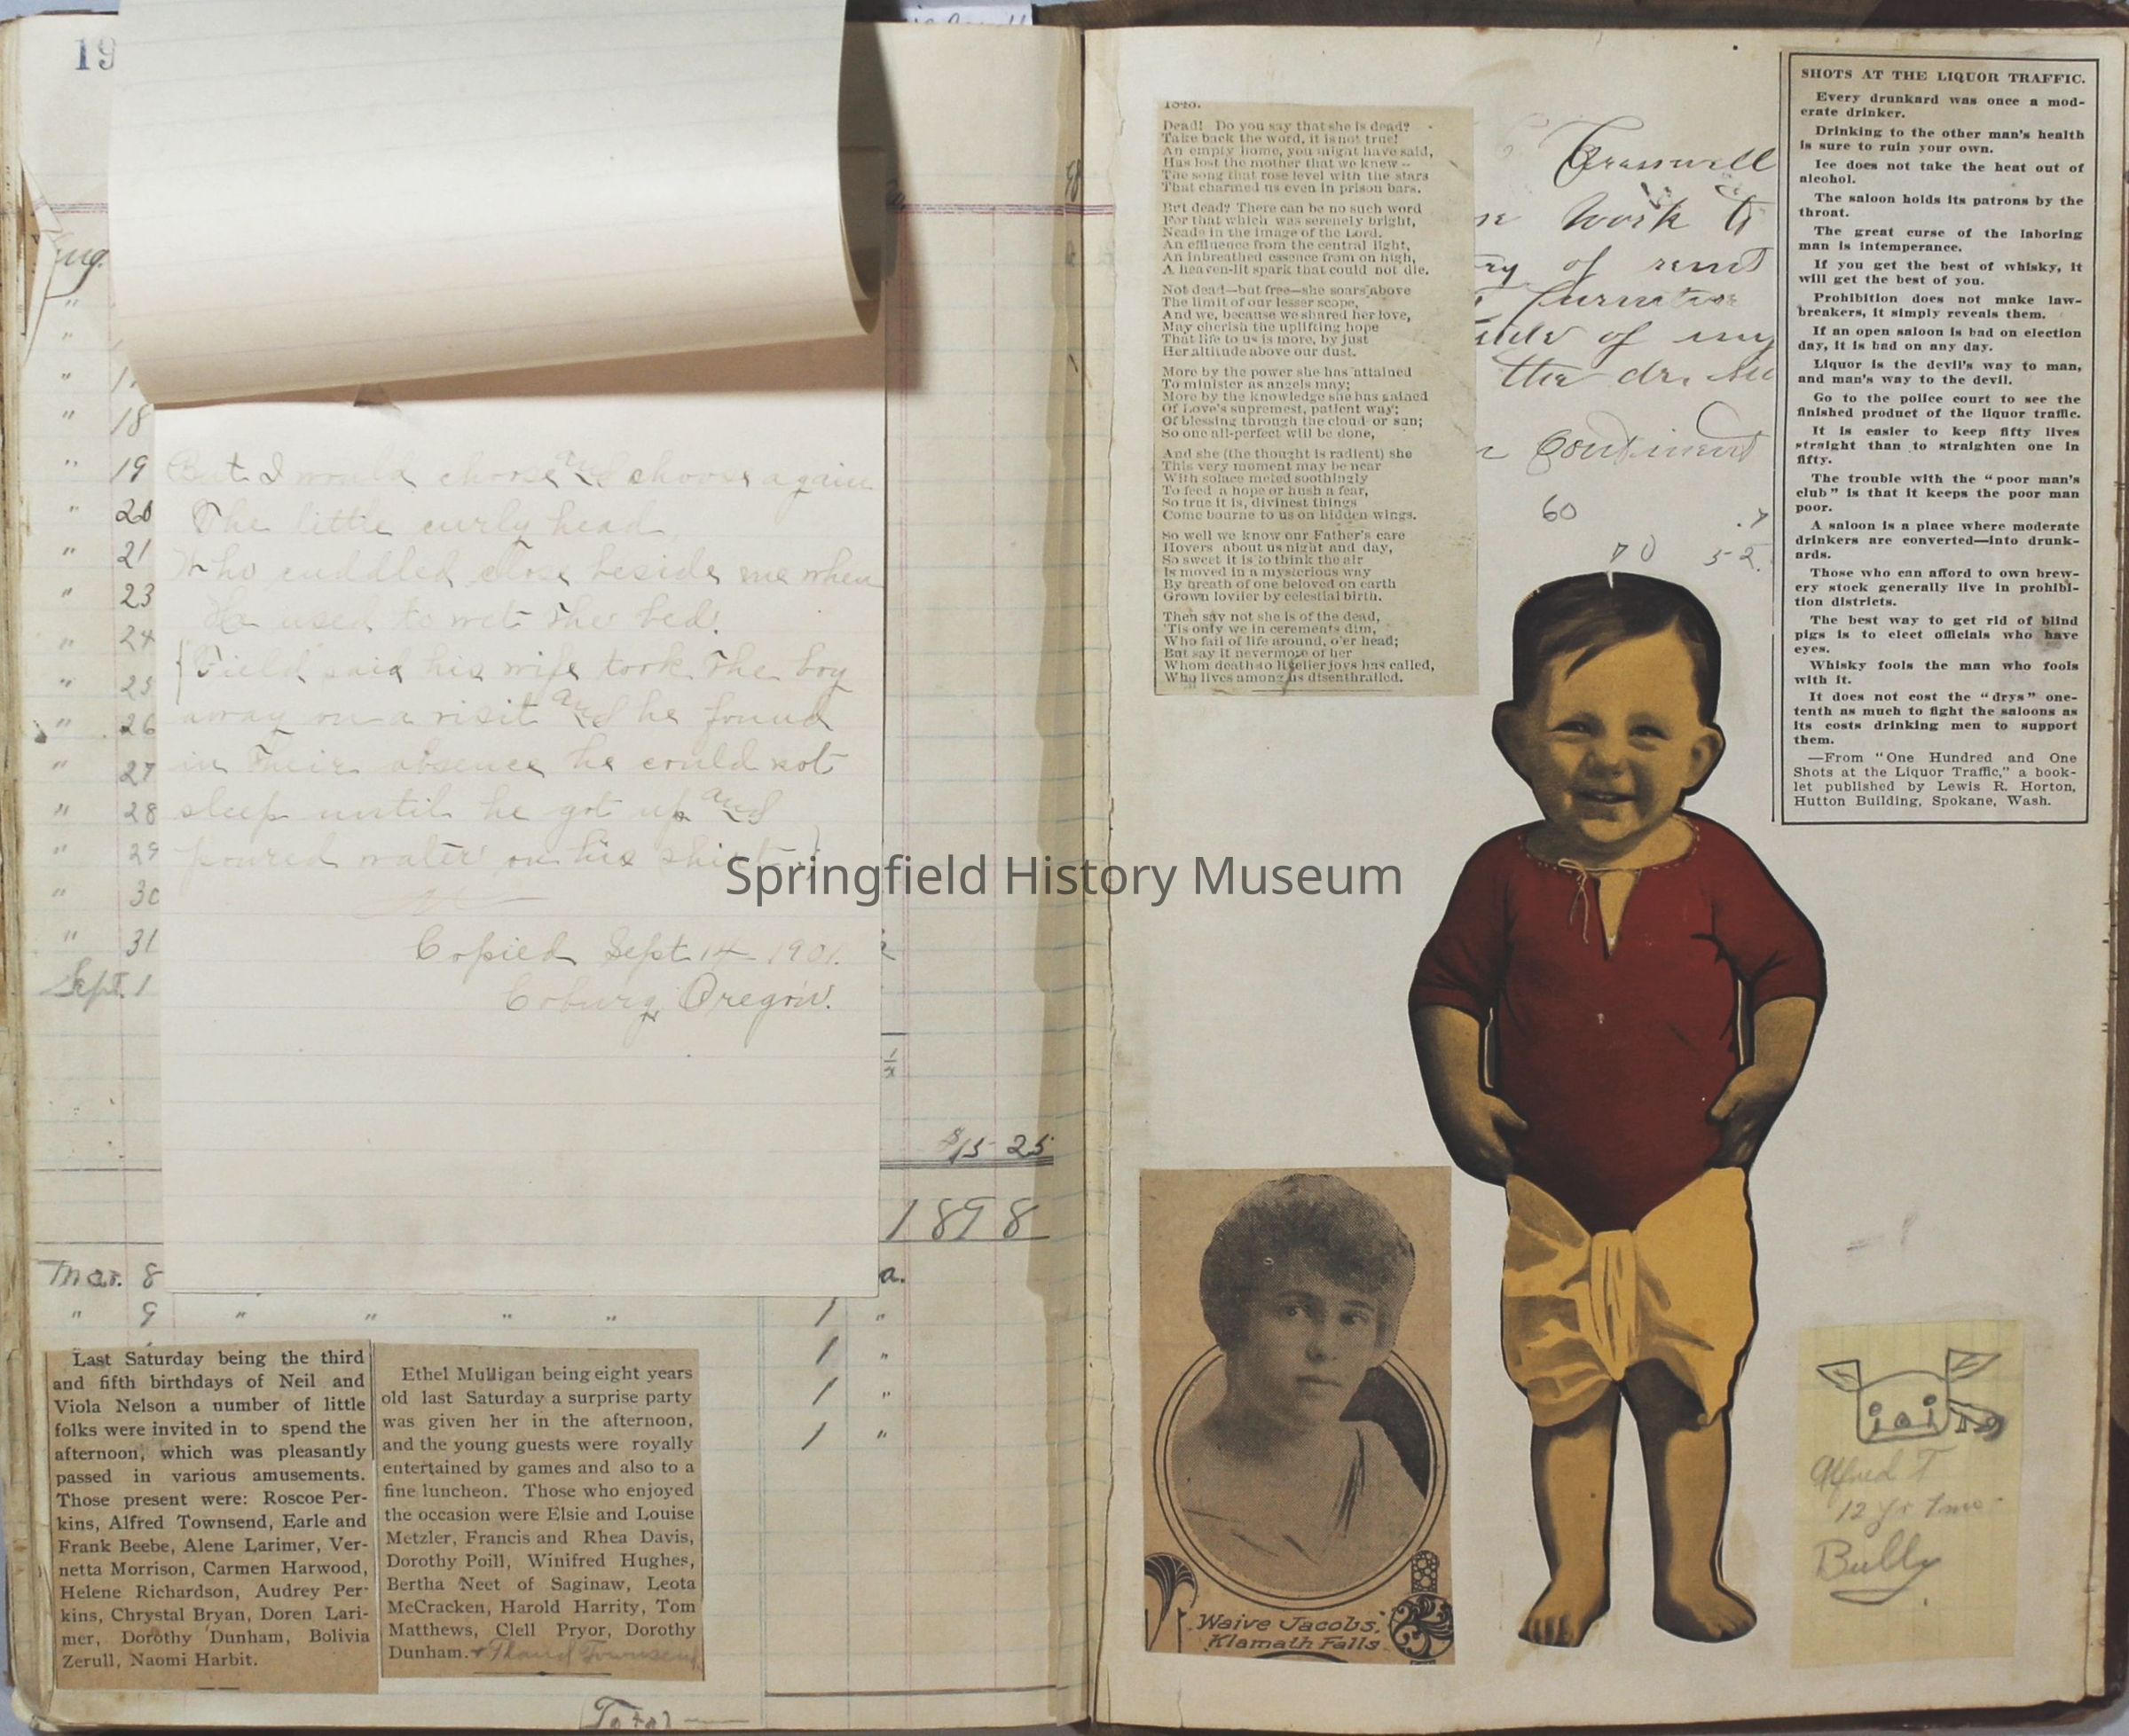 19
Aug.
"
"
"
" 18
" 19
" 20
" 21
" 23
" 24
" 25
" 26
" 27
" 28
" 29
" 30
" 31
Sept. 1
But I would choose and choose again
The little curly head,
Who cuddled close beside me when
He used to wet the bed.
{Field said his wife took the boy
away on a visit and he found
in their absence he could not
sleep until he got up and
poured water on his shirt.)
Copied Sept 14 1901.
Coburg Oregon.
$15 25
1898
Mar. 8 a.
" 9 " " " " 1 "
1 "
1 "
1 "
Last Saturday being the third
and fifth birthdays of Neil and
Viola Nelson a number of little
folks were invited in to spend the
afternoon, which was pleasantly
passed in various amusements.
Those present were: Roscoe Per-
kins, Alfred Townsend, Earle and
Frank Beebe, Alene Larimer, Ver-
netta Morrison, Carmen Harwood,
Helene Richardson, Audrey Per-
kins, Chrystal Bryan, Doren Lari-
mer, Dorothy Dunham, Bolivia
Zerull, Naomi Harbit.
Ethel Mulligan being eight years
old last Saturday a surprise party
was given her in the afternoon,
and the young guests were royally
entertained by games and also to a
fine luncheon. Those who enjoyed
the occasion were Elsie and Louise
Metzler, Francis and Rhea Davis,
Dorothy Poill, Winifred Hughes,
Bertha Neet of Saginaw, Leota
McCracken, Harold Harrity, Tom
Matthews, Clell Pryor, Dorothy
Dunham. + Townsend
Total
Dead! Do you say that she is dead?
Take back the word, it is not true!
An empty home, you might have said,
Has lost the mother that we knew--
The song that rose level with the stars
That charmed us even in prison bars.
But dead? There can be no such word
For that which was serenely bright,
Neade in the image of the Lord.
An effluence from the central light,
An inbreathed essence from on high,
A heaven-lit spark that could not die.
Not dead—but free—she soars above
The limit of our lesser scope,
And we, because we shared her love,
May cherish the uplifting hope
That life to us is more, by just
Her altitude above our dust.
More by the power she has attained
To minister as angels may;
More by the knowledge she has gained
Of Love's supremest, patient way;
Of blessing through the cloud or sun;
So one all-perfect will be done,
And she (the thought is radient) she
This very moment may be near
With solace meted soothingly
To feed a hope or hush a fear,
So true it is, divinest things
Come bourne to us on hidden wings.
So well we know our Father's care
Hovers about us night and day,
So sweet it is to think the air
Is moved in a mysterious way
By breath of one beloved on earth
Grown lovlier by celestial birth.
Then say not she is of the dead,
'Tis only we in cerements dim,
Who fail of life around, o'er head;
But say it nevermore of her
Whom death to livelier joys has called,
Who lives among us disenthralled.
Creswell
work to
of rent
of my
the
Continent
60
70 52.
SHOTS AT THE LIQUOR TRAFFIC.
Every drunkard was once a mod-
erate drinker.
Drinking to the other man's health
is sure to ruin your own.
Ice does not take the heat out of
alcohol.
The saloon holds its patrons by the
throat.
The great curse of the laboring
man is intemperance.
If you get the best of whisky, it
will get the best of you.
Prohibition does not make law-
breakers, it simply reveals them.
If an open saloon is bad on election
day, it is bad on any day.
Liquor is the devil's way to man,
and man's way to the devil.
Go to the police court to see the
finished product of the liquor traffic.
It is easier to keep fifty lives
straight than to straighten one in
fifty.
The trouble with the "poor man's
club" is that it keeps the poor man
poor.
A saloon is a place where moderate
drinkers are converted—into drunk-
ards.
Those who can afford to own brew-
ery stock generally live in prohibi-
tion districts.
The best way to get rid of blind
pigs is to elect officials who have
eyes.
Whisky fools the man who fools
with it.
It does not cost the "drys" one-
tenth as much to fight the saloons as
its costs drinking men to support
them.
—From "One Hundred and One
Shots at the Liquor Traffic," a book-
let published by Lewis R. Horton,
Hutton Building, Spokane, Wash.
Springfield History Museum
Waive Jacobs.
Klamath Falls.
Alfred T
12 yr 7 mo.
Bully